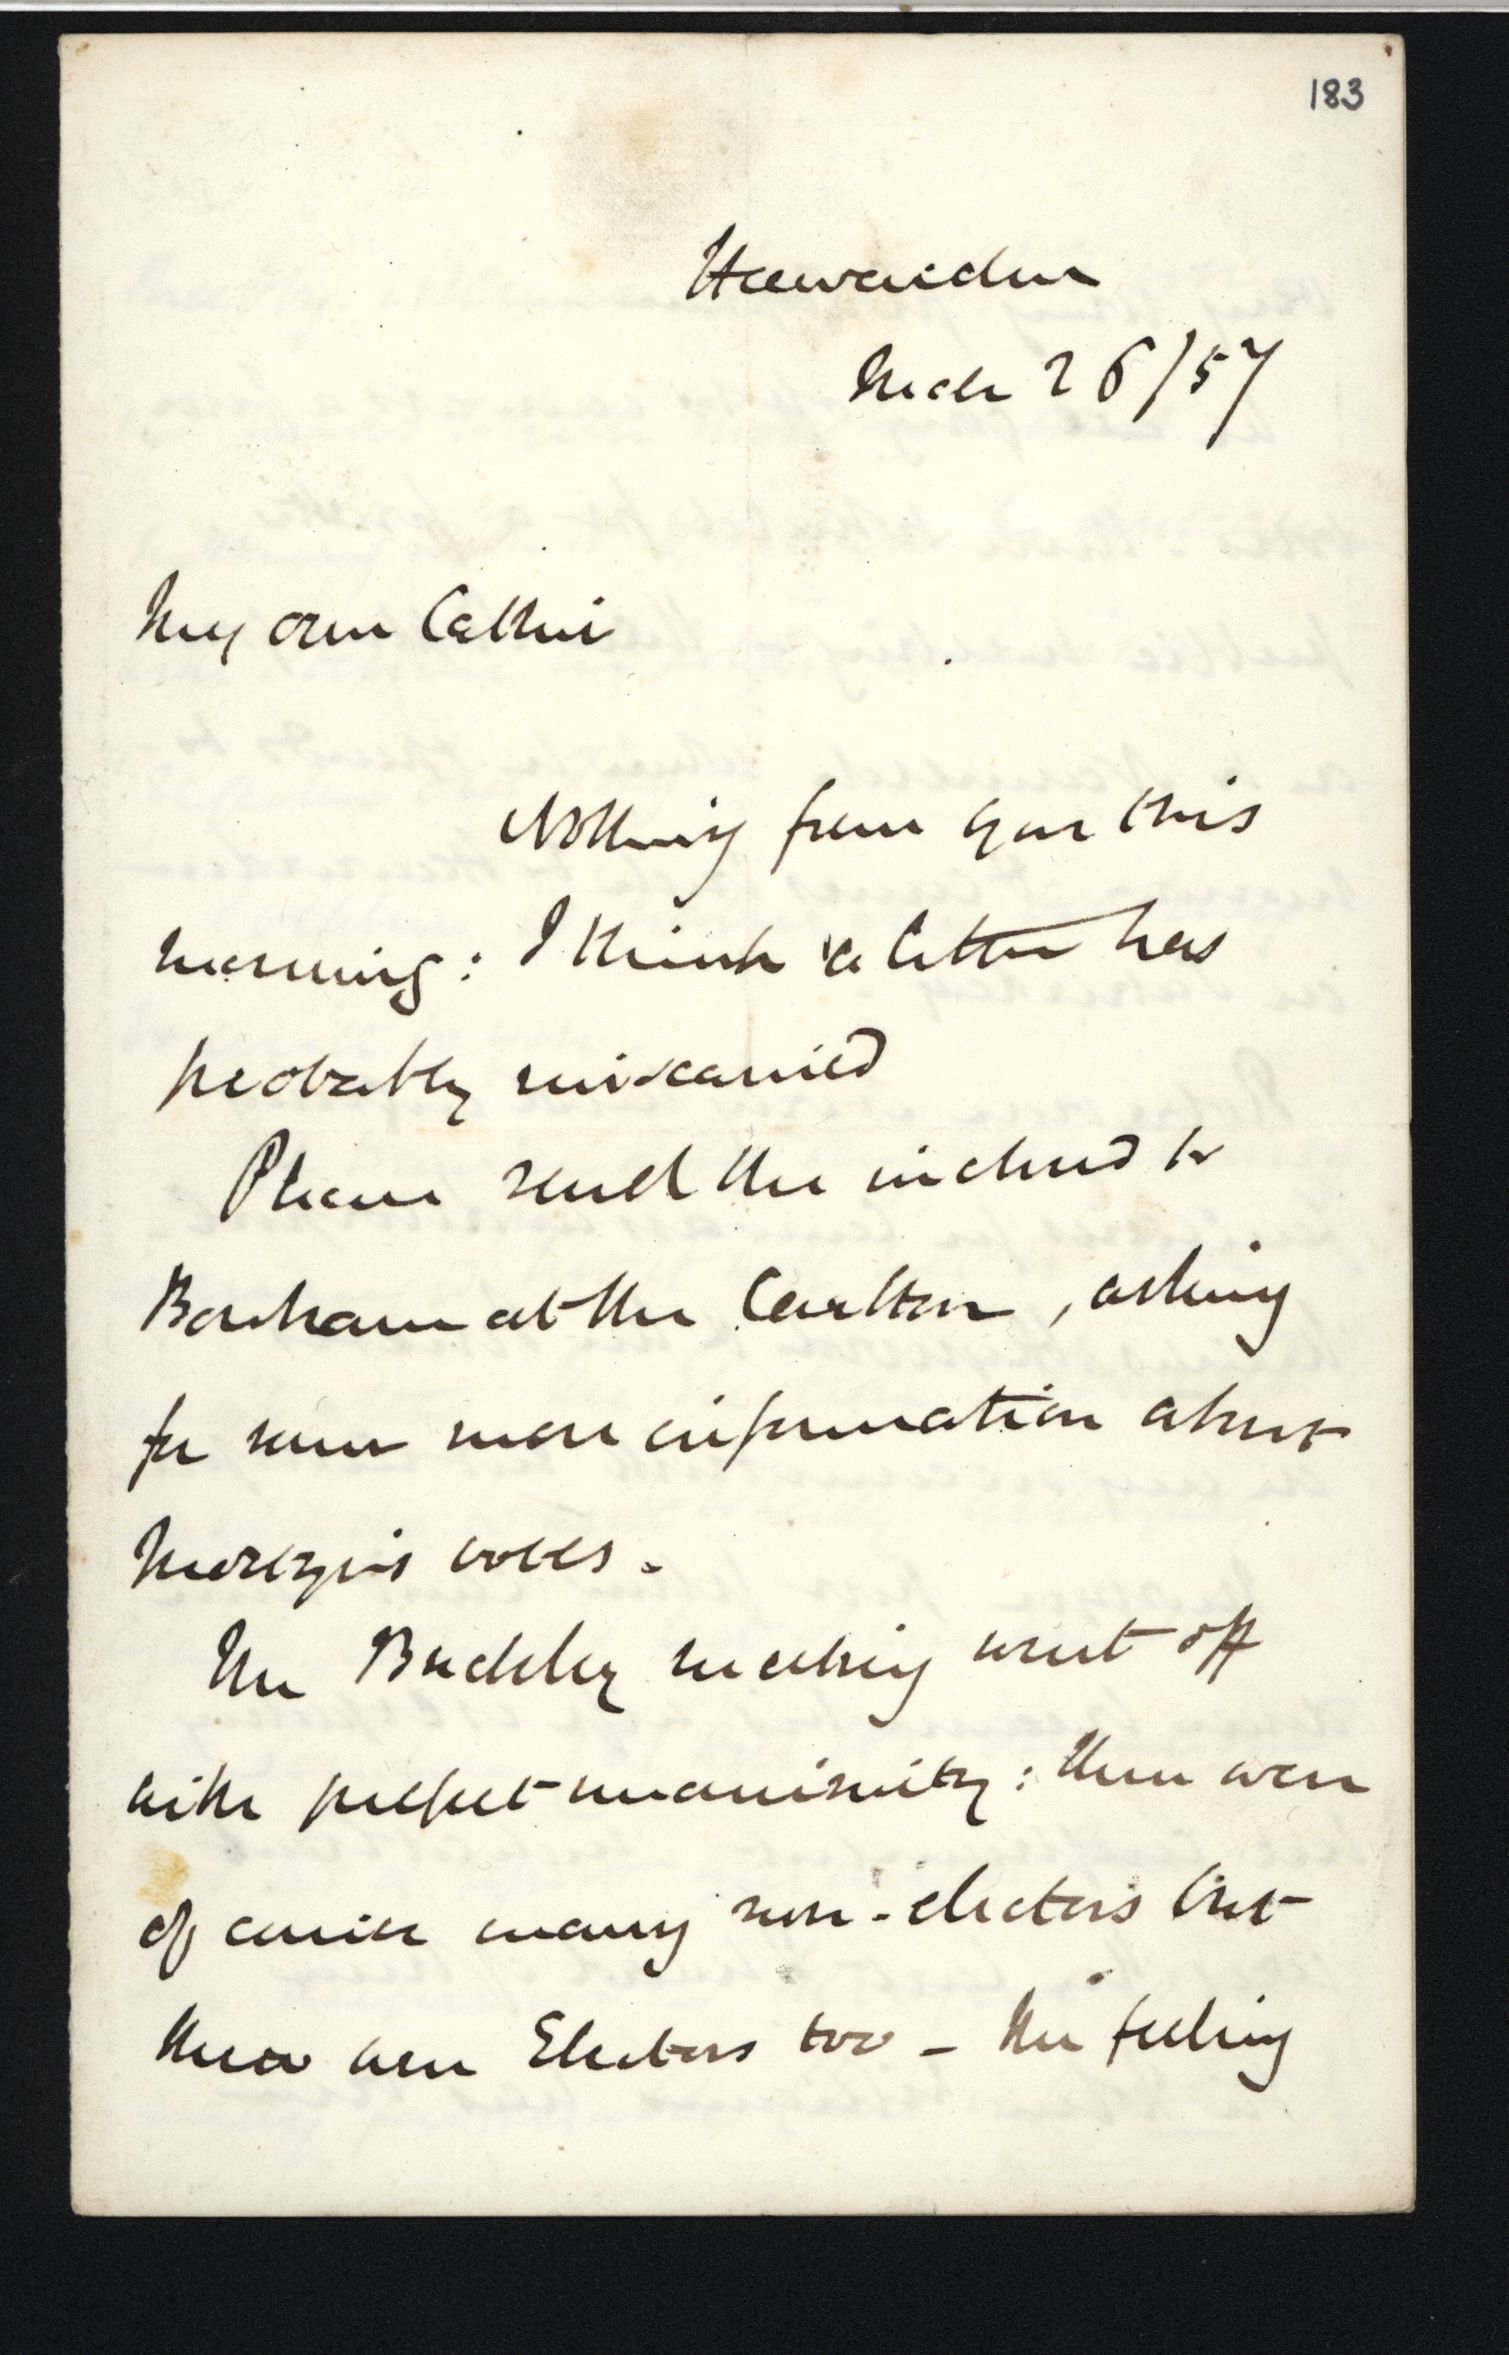 183
Hawarden
Mch 26/57
My own Cathie
Nothing from you this
morning: I think a letter has
probably miscarried
Please send the inclosed to
Bonham at the Carlton, asking
for some more information about
Mostyn's votes.
The Buckley meeting went off
with perfect unanimity: there were
of course many non-electors but
there were Electors too - the feeling